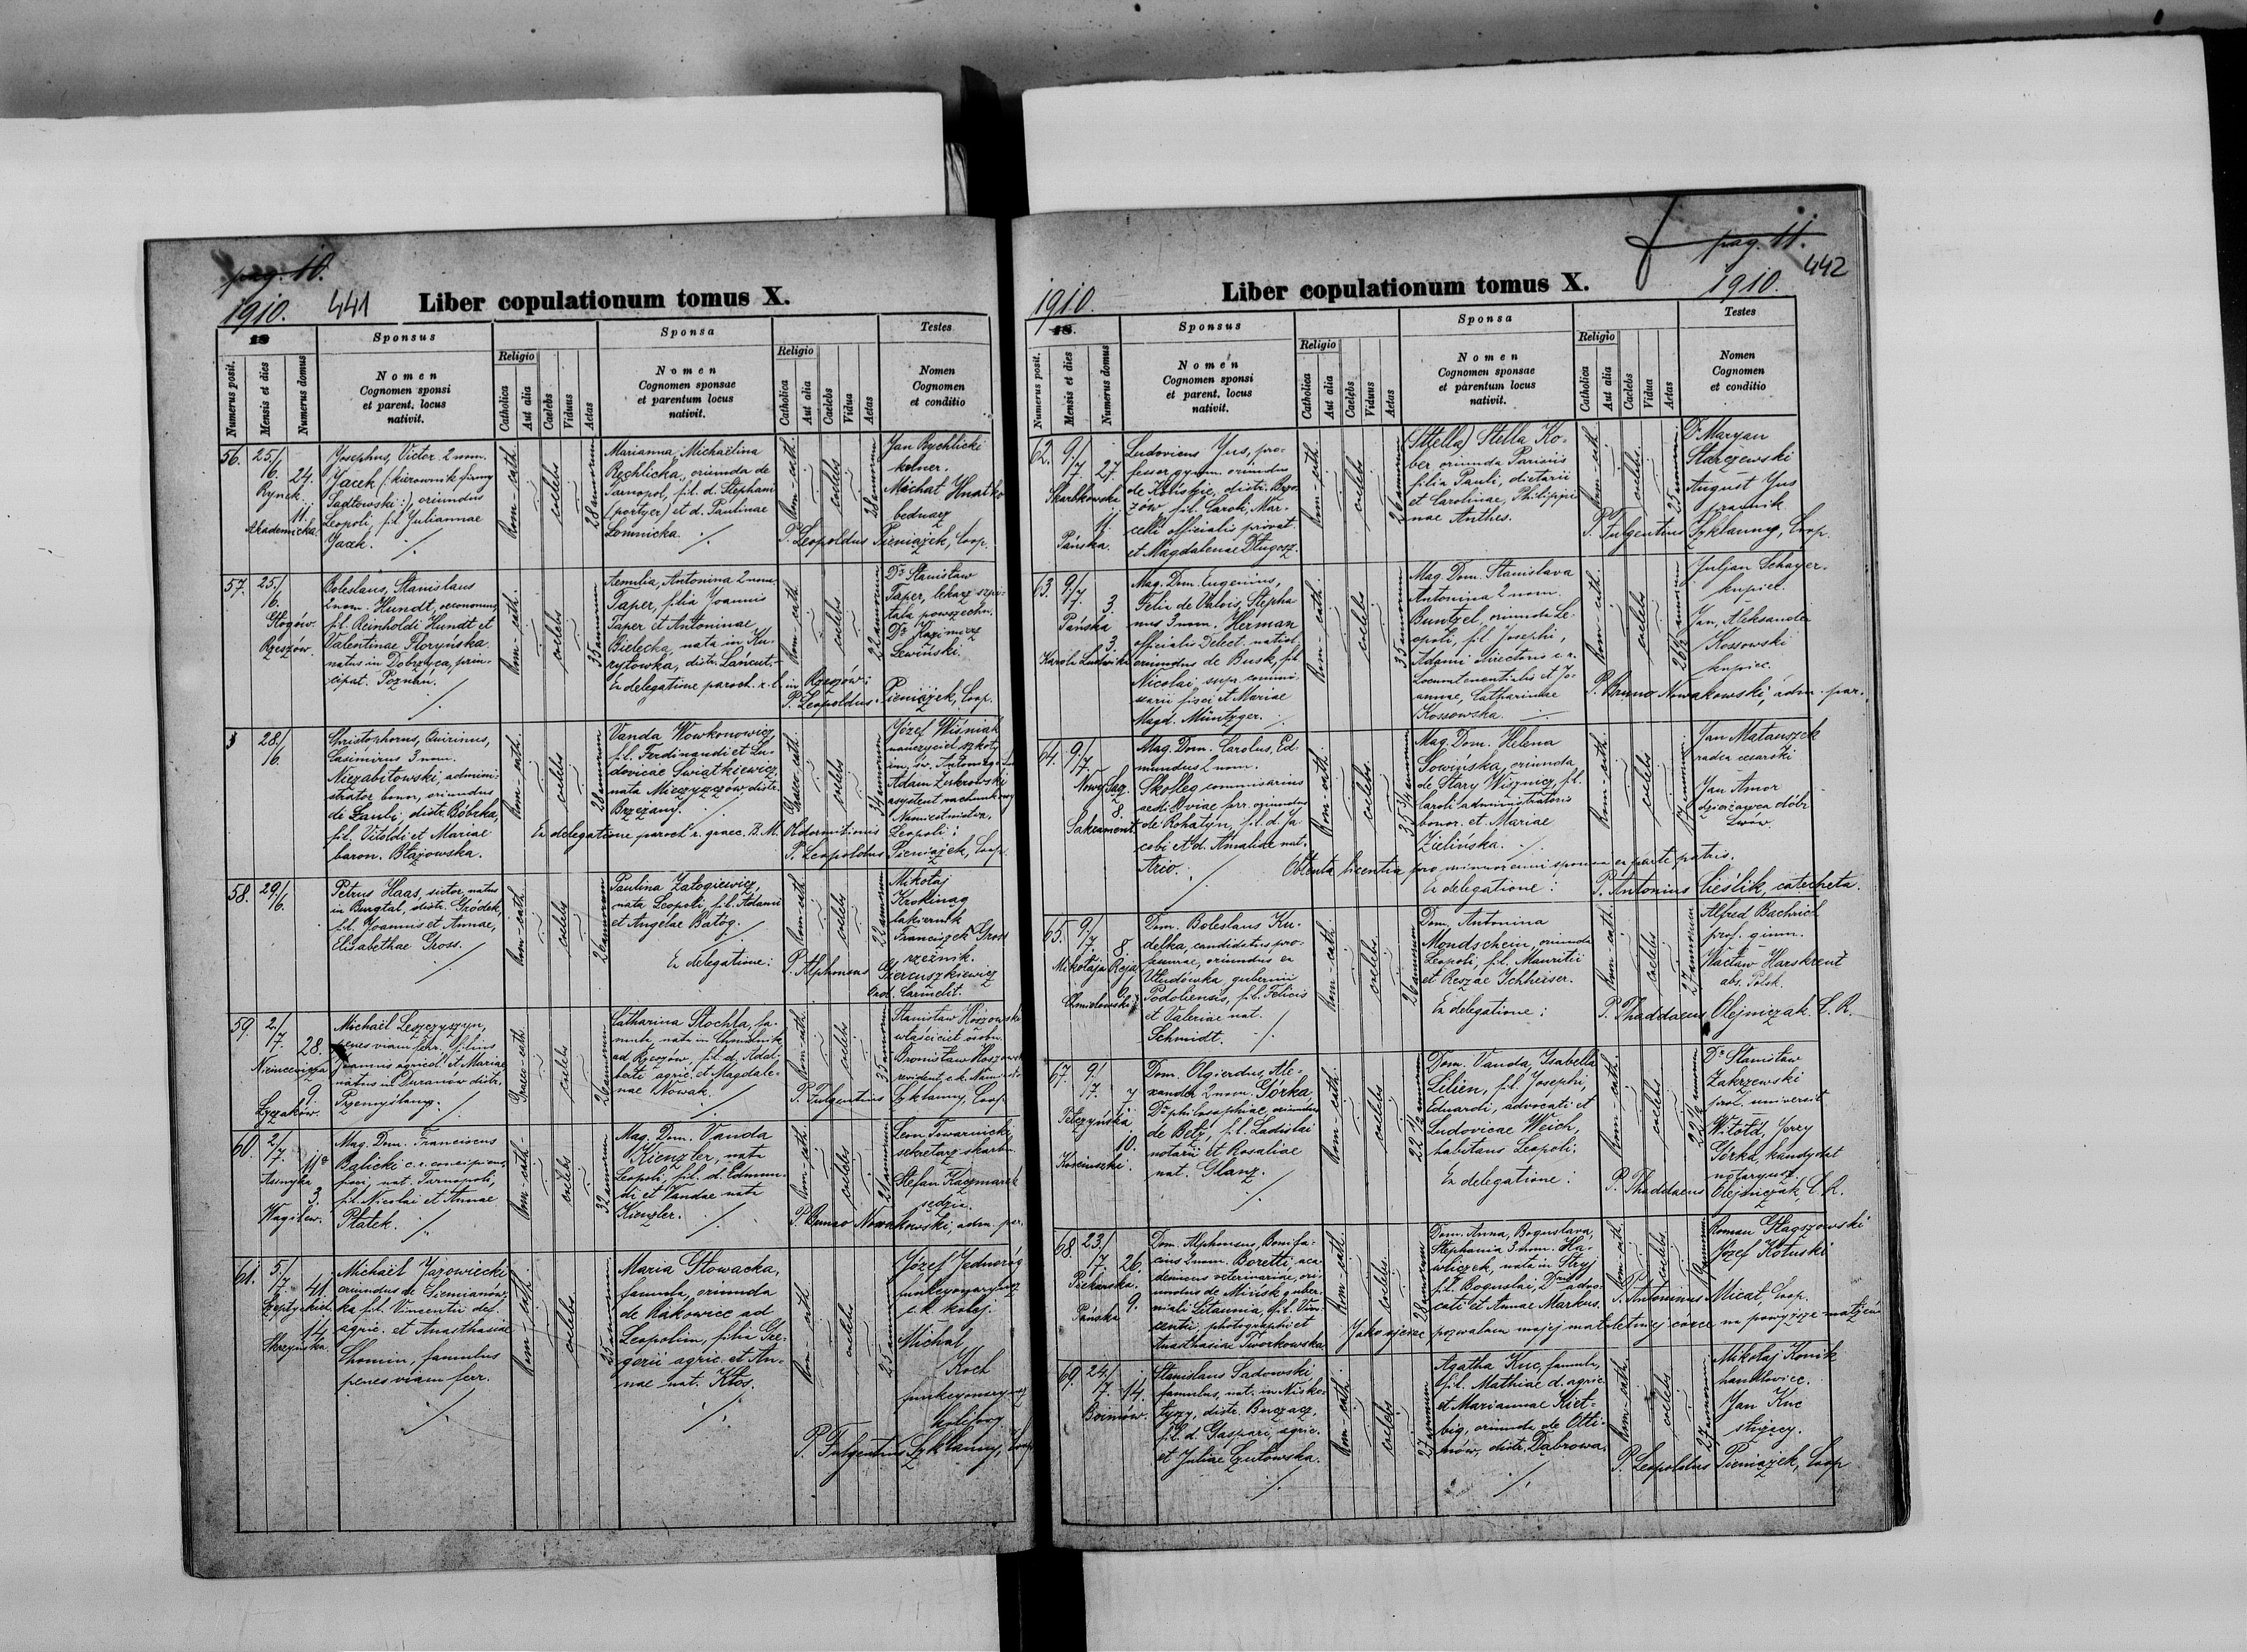 pag. 10.
1910. 441 Liber copulationum tomus X.
19
Sponsus
Sponsa
Testes
Numerus posit.
Mensis et dies
Numerus domus
Nomen
Cognomen sponsi
et parent. locus
nativit.
Religio
Catholica
Aut alia
Caelebs
Viduus
Aetas
Nomen
Cognomen sponsae
et parentum locus
nativit.
Religio
Catholica
Aut alia
Caelebs
Vidua
Aetas
Nomen
Cognomen
et conditio
56. 25/6. 24.
Rynek
11.
Akademicka.
Josephus, Victor 2 nom.
Jacek (: kierownik firmy
Sadłowski :), oriundus
Leopoli, fil. Juliannae
Jacek.
Rom-cath. caelebs 28 annorum
Marianna, Michaëlina
Rychlicka, oriunda de
Tarnopol, fil. d. Stephani
(portyer) et d. Paulinae
Łomnicka.
Rom-cath. caelebs 28 annorum
Jan Rychlicki
kelner.
Michał
bednarz
P. Leopoldus Pieniążek, Coop.
57. 25/6.
Głogów.
Rzeszów.
Boleslaus, Stanislaus
2 nom. Hundt, oeconomus,
fil. Reinholdi Hundt et
Valentinae Floryńska
natus in Dobrzyca, prin-
cipat. Poznań.
Rom-cath. caelebs 33 annorum
Aemilia, Antonina 2 nom.
Taper, filia Joannis
Taper et Antoninae
Bielecka, nata in Ku-
ryłowka, distr. Łańcut.
Rom-cath. caelebs 22 annorum
Dr Stanisław
Taper, lekarz szpi-
tala powszechn.
Dr Kazimierz
Lewiński.
Ex delegatione paroch. r. l. in Rzeszów:
P. Leopoldus Pieniążek, Coop.
28/6.
Christophorus, Quirinus,
Casimirus 3 nom.
Niezabitowski, admini-
strator bonor., oriundus
de Łanki, distr. Bóbrka,
fil. Vitoldi et Mariae
baron. Błażowska.
Rom-cath. caelebs 28 annorum
Vanda Wowkonowicz,
fil. Ferdinandi et Lu-
dovicae Swiątkiewicz,
nata Mieczyszczów, distr.
Brzeżany.
Graeco-cath. caelebs 34 annorum
Józef Wiśniak
nauczyciel szkoły
im. św. Antoniego
Adam Żukrowski
asystent rachunkowy
Namiestnictwa,
Leopoli:
Ex delegatione paroch. r. graec. B. M. Obdormitionis
P. Leopoldus Pieniążek, Coop.
58. 29/6.
Petrus Haas, sutor, natus
in Burgtal, distr. Gródek,
fil. Joannis et Annae,
Elisabethae Gross.
Rom-cath. caelebs 26 annorum
Paulina Załogiewicz,
nata Leopoli, fil. Adami
et Angelae Batog.
Rom-cath. caelebs 22 annorum
Mikołaj
lakiernik
Franciszek Gross
rzeźnik.
Ex delegatione: P. Alphonsus
Ord. Carmelit.
59. 2/7. 28.
Niemcewicza
9.
Łyczaków.
Michaël Leszczyszyn,
penes viam ferr. filius
Joannis agricol. et Mariae
natus in Dunanów distr.
Przemyślany.
Graeco-cath. caelebs 26 annorum
Catharina Stochla, fa-
mula, nata in Chmielnik
ad Rzeszów, fil. d. Adal-
berti agric. et Magdale-
nae Nowak.
Rom-cath. caelebs 35 annorum
Stanisław Hoszowski
właściciel
Bronisław Hoszowski
rewident, c.k.
P. Fulgentius Szklanny, Coop.
60. 2/7. 11a
Asnyka
3.
Wagilew.
Mag. Dom. Franciscus
Balicki c. r. concipiens
fisci, nat. Tarnopoli,
fil. Nicolai et Annae
Płatek.
Rom-cath. caelebs 32 annorum
Mag. Dom. Vanda
Kienzler, nata
Leopoli, fil. d. Edmun-
di et Vandae nata
Kienzler.
Rom-cath. caelebs 26 annorum
Leon Towarnicki,
sekretarz skarbu.
Stefan Kaczmarek
sędzia.
P. Bruno Nowakowski, adm. par.
61. 5/7. 41.
Szeptyckich
14.
Skrzyńska.
Michaël Jarowiecki
oriundus de Siemianów-
ka fil. Vincentii def.
agric. et Anasthasiae
Shomin, famulus
penes viam ferr.
Rom-cath. caelebs 25 annorum
Maria Słowacka,
famula, oriunda
de Rakowice ad
Leopolim, filia Gre-
gorii agric. et An-
nae nat. Kłos.
Rom-cath. caelebs 25 annorum
Józef Jednoróg
funkcyonaryusz
c.k. kolej.
Michał
Koch
funkcyonaryusz
kolejowy
P. Fulgentius Szklanny, Coop.
pag. 11.
442
1910. Liber copulationum tomus X. 1910.
18.
Sponsus
Sponsa
Testes
Numerus posit.
Mensis et dies
Numerus domus
Nomen
Cognomen sponsi
et parent. locus
nativit.
Religio
Catholica
Aut alia
Caelebs
Viduus
Aetas
Nomen
Cognomen sponsae
et parentum locus
nativit.
Religio
Catholica
Aut alia
Caelebs
Vidua
Aetas
Nomen
Cognomen
et conditio
62. 9/7 27
Skarbkowska
11.
Pańska.
Ludovicus Jus, pro-
fessor gymn. oriundus
de distr. Brzo-
zów, fil. Caroli, Mar-
celli officialis privat.
et Magdalenae Długosz.
Rom-cath. caelebs 26 annorum
(Stella) Stella Ko-
ber oriunda Parisiis
filia Pauli, dietarii
et Carolinae, Philippi-
nae Anthes.
Rom-cath. caelebs. 25 annorum
Dr Maryan
Starczewski
August Jus
prawnik.
P. Fulgentius Szklanny, Coop.
63. 9/7. 3.
Pańska
3.
Karoli Ludwika
Mag. Dom. Eugenius,
Felix de Valois, Stepha
nus 3 nom. Herman
officialis Delect. nation.
oriundus de Busk, fil.
Nicolai supr. commi-
sarii fisci et Mariae
Magd. Müntzger.
Rom-cath. caelebs 35 annorum
Mag. Dom. Stanislava
Antonina 2 nom.
Buntzel, oriunda Le-
opoli, fil. Josephi,
Adami directoris c. r.
Locumtenentialis et Jo-
annae, Catharinae
Kossowska.
Rom-cath. caelebs 26 1/2 annorum
Juljan Schayer.
kupiec.
Jan, Aleksander
Kossowski
kupiec.
P. Bruno Nowakowski, adm. par.
64. 9/7.
Nowy Sącz.
8.
Sakrament.
Mag. Dom. Carolus, Ed-
mundus 2 nom.
Skolleg commissarius
aedil. viae ferr. oriundus
de Rohatyn, fil. d. Ja-
cobi et d. Amaliae nat.
Ario.
Rom-cath. caelebs. 35 3/4 annorum
Mag. Dom. Helena
Sowińska, oriunda
de Stary Wiśnicz, fil.
Caroli administratoris
bonor. et Mariae
Zielińska.
Rom-cath. caelebs 17 annorum
Jan Matauszek
radca cesarski
Jan Amor
dzierżawca dóbr
Lwów.
Obtenta licentia pro minorenni sponsa ex parte patris.
Ex delegatione: P. Antonius Cieślik, catecheta.
65. 9/7 8.
Mikołaja Reja
6.
Dom. Boleslaus Ku-
delka, candidatus pro-
fessurae, oriundus ex
Vludówka, gubernii
Podoliensis, fil. Felicis
et Valeriae nat.
Schmidt.
Rom-cath. caelebs. 26 annorum
Dom. Antonina
Mondschein, oriunda
Leopoli, fil. Mauritii
et Reszae Ichheiser.
Rom-cath. caelebs 27 annorum
Alfred Bachrich
prof. gimn.
Wacław Harskreut
abs. Polit.
Ex delegatione: P. Thaddaeus Olejniczak C. R.
67. 9/7. 7
Tełczyńska
10.
Kościuszki.
Dom. Olgierdus, Ale-
xander 2 nom. Górka,
Dr philosophiae, oriundus
de Bełz, fil. Ladislai
notarii et Rosaliae
nat. Glanz.
Rom-cath. caelebs 22 1/2 annorum
Dom. Vanda, Isabella
Lilien, fil. Josephi,
Eduardi, advocati et
Ludovicae Weich,
habitans Leopoli.
Rom-cath. caelebs 22 1/2 annorum
Dr Stanisław
Zakrzewski
prof. uniwersit
Witołd, Jerzy
Górka, kandydat
notaryusz
Ex delegatione: P. Thaddaeus Olejniczak, C. R.
68. 23/7. 26.
Piekarska.
9.
Pańska
Dom. Alphonsus, Bonifa-
cius 2 nom. Boretti, aca-
demicus veterinariae, ori-
undus de Mińsk guber-
niali Litaunia, fil. Vin-
centii, photographi et
Anasthasiae Tworkowska.
Rom-cath. caelebs. 28 annorum
Dom. Anna, Boguslava,
Stephania 3 nom. Ha-
wliczek, nata in Stryj
fil. Boguslai, Dris advo-
cati et Annae Markus.
Rom-cath. caelebs. annorum
Roman Głagszowski
Józef Kotuski
P. Antoninus Micał, Coop.
Jako ojciec pozwalam mojej małoletniej córce na powyższe małżeń
69. 24/7. 14.
Boimów.
Stanislaus Sadowski
famulus, nat. in Nisko-
łyzy, distr. Buczacz,
fil. d. Gaspari, agric.
et Juliae Czutowska.
Rom-cath. caelebs 27 annorum
Agatha Kuc, famula,
fil. Mathiae d. agric.
et Mariannae Kieł-
big, oriunda de Otti-
nów, distr. Dąbrowa.
Rom-cath. caelebs 27 annorum
Mikołaj Konik
handlowiec.
Jan Kuc
służący.
P. Leopoldus Pieniążek, Coop